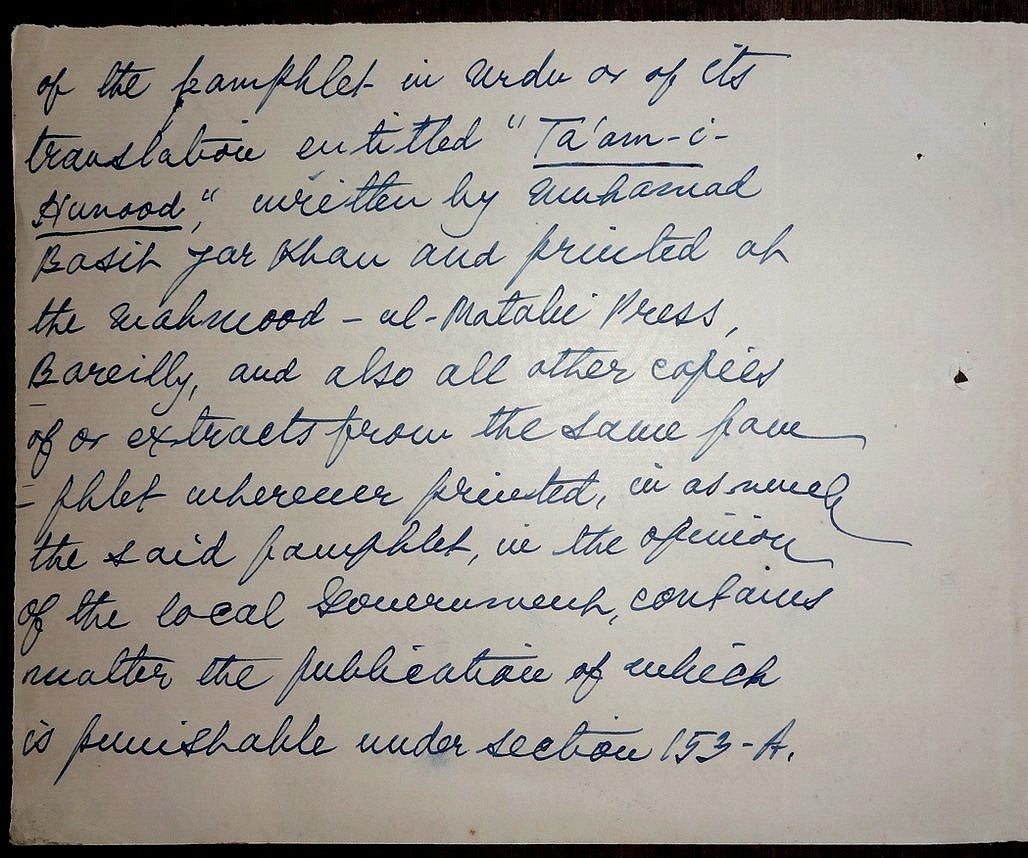 of the pamphlet in Urdu or of its
translation entitled "Ta'am-i-
Hunood," written by Muhamad
Basit Yar Khan and printed at
the Mahmood-ul-Matabi Press,
Bareilly, and also all other copies
of or extracts from the same pam
- phlet wherever printed, in as much
the said pamphlet, in the opinion
of the local Government, contains
matter the publication of which
is punishable under section 153-A.